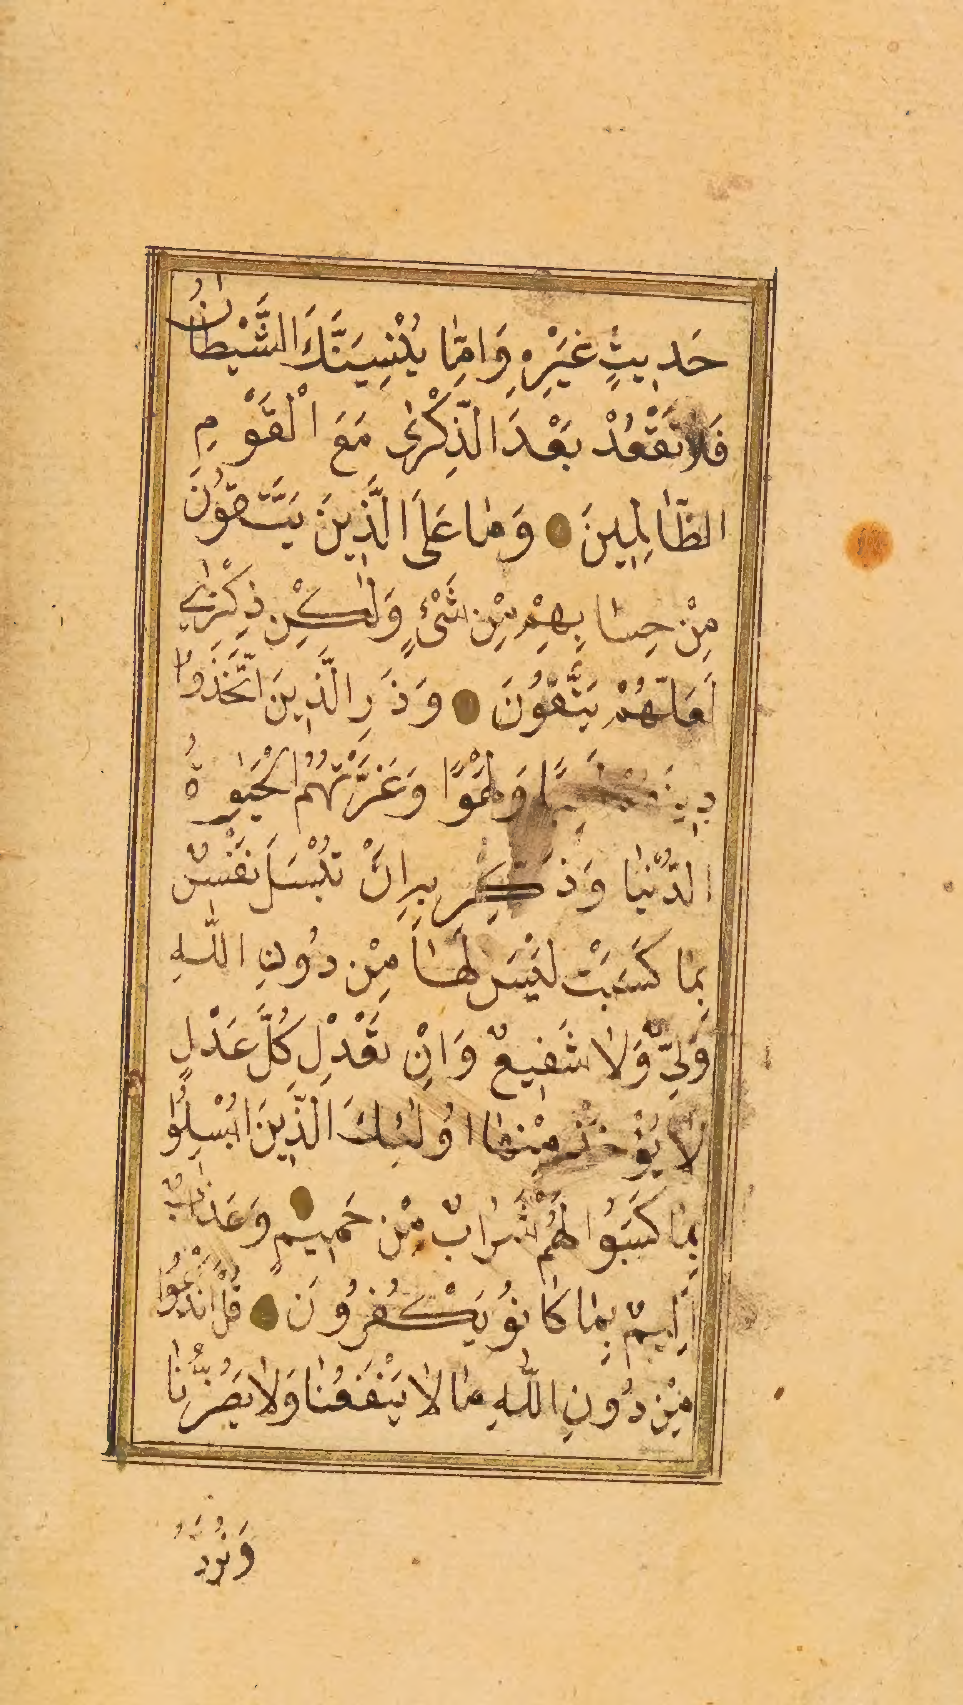 حَدِيثٍ غَيْرِهِ وَاِمَّا يُنْسِيَنَّكَ الشَّيْطَانُ
فَلَا تَقْعُدْ بَعْدَ الذِّكْرٰى مَعَ الْقَوْمِ
الظَّالِمِينَ وَمَا عَلَى الَّذِينَ يَتَّقُونَ
مِنْ حِسَابِهِمْ مِنْ شَىْءٍ وَلٰكِنْ ذِكْرٰى
لَعَلَّهُمْ يَتَّقُونَ وَذَرِ الَّذِينَ اتَّخَذُوا
دِينَهُمْ لَعِبًا وَلَهْوًا وَغَرَّتْهُمُ الْحَيٰوةُ
الدُّنْيَا وَذَكِّرْ بِهِ اَنْ تُبْسَلَ نَفْسٌ
بِمَا كَسَبَتْ لَيْسَ لَهَا مِنْ دُونِ اللّٰهِ
وَلِىٌّ وَلَا شَفِيعٌ وَاِنْ تَعْدِلْ كُلَّ عَدْلٍ
لَا يُؤْخَذْ مِنْهَا اُولٰئِكَ الَّذِينَ اُبْسِلُوا
بِمَا كَسَبُوا لَهُمْ شَرَابٌ مِنْ حَمِيمٍ وَعَذَابٌ
اَلِيمٌ بِمَا كَانُوا يَكْفُرُونَ قُلْ اَنَدْعُوا
مِنْ دُونِ اللّٰهِ مَا لَا يَنْفَعُنَا وَلَا يَضُرُّنَا
وَنُرَدُّ